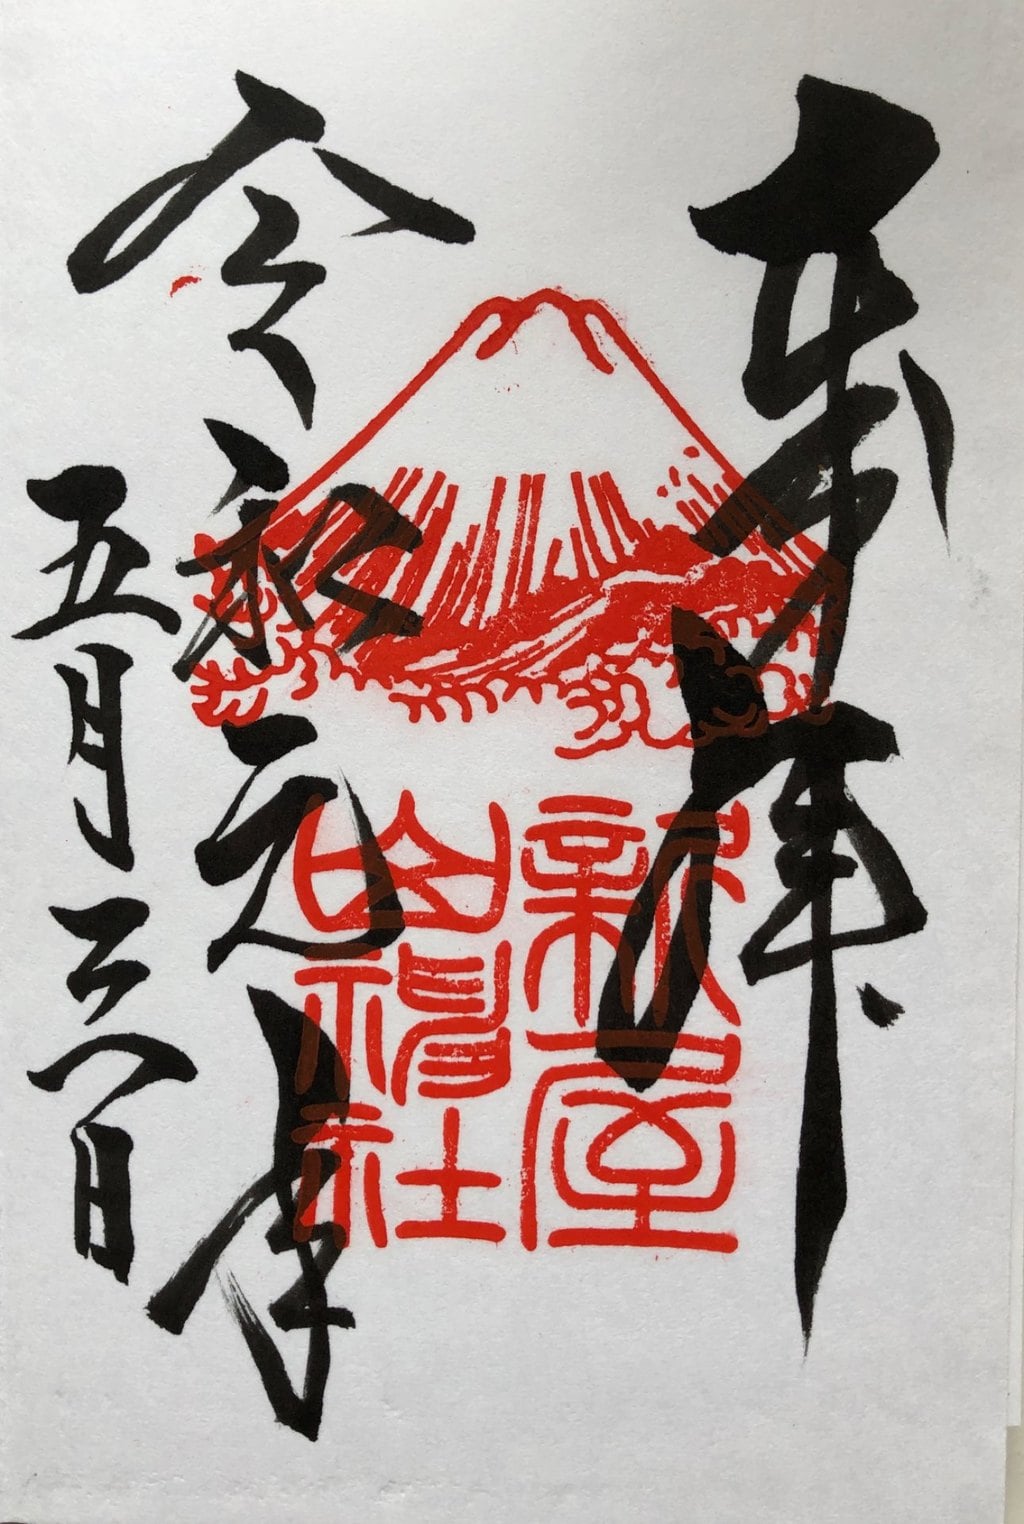 奉拝
新屋
山神社
令和元年
五月 日